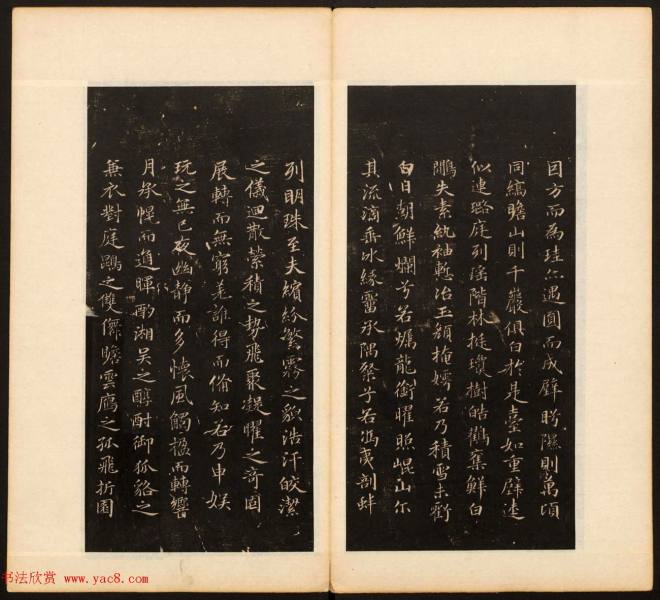 因方而為珪亦遇圓而成璧眄隰則萬頃
同縞瞻山則千巖俱白於是臺如重璧逵
似連璐庭列瑤階林挺瓊樹皓鶴奪鮮白
鷴失素紈袖慙冶玉顏掩嫮若乃積雪未虧
白日朝鮮爛兮若燭龍銜曜照崐山尔
其流滴垂冰緣霤承隅粲兮若馮夷剖蚌
列明珠至夫繽紛繁霧之貌浩汗皎潔
之儀迴散縈積之勢飛聚凝曜之奇固
展轉而無窮羌誰得而俻知若乃申娱
玩之無已夜幽静而多懷風觸楹而轉響
月承幌而通暉酌湘吴之醇酎御狐貉之
兼衣對庭鵾之雙儛瞻雲鴈之孤飛折園
书法欣赏 www.yac8.com